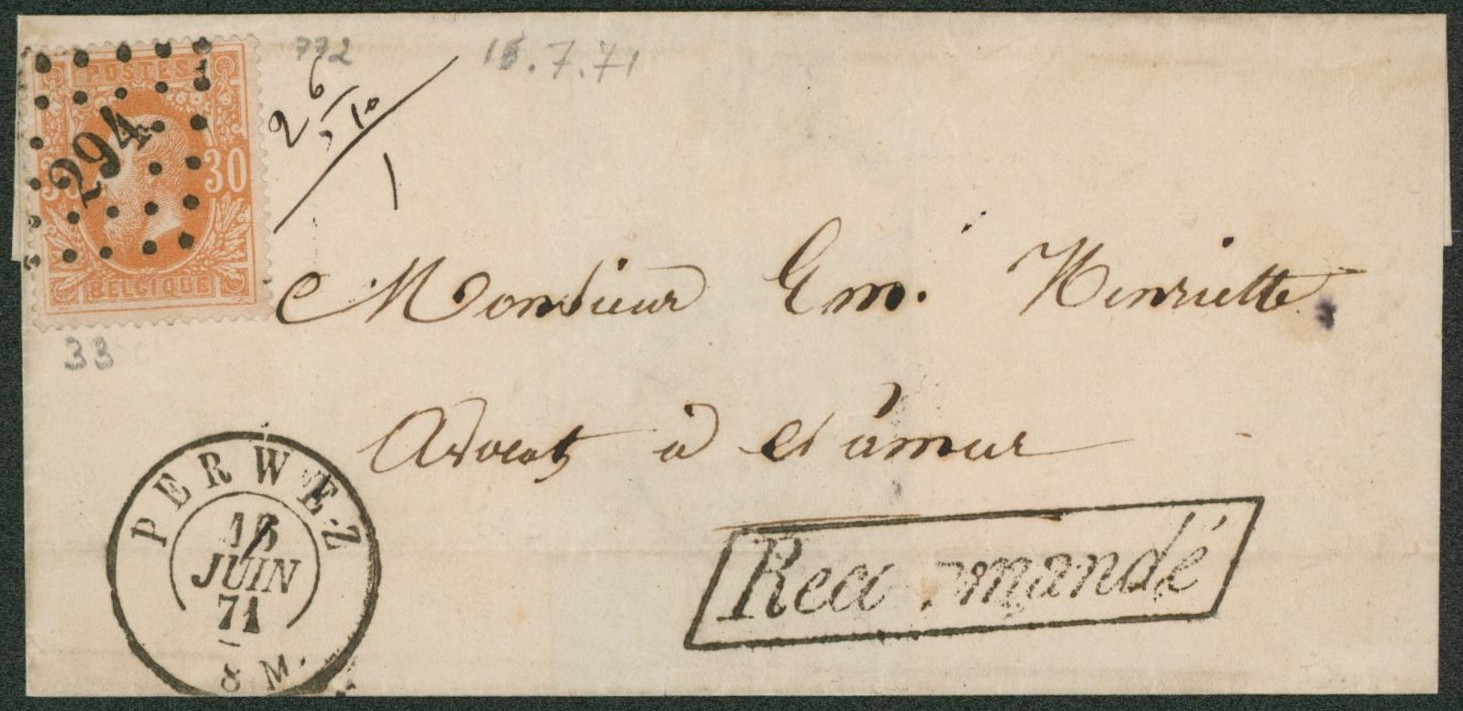 POSTES
294
30
BELGIQUE
772
15.7.71
26
510
1
Monsieur Em. Henriette
33
Avocat à Namur
PERWEZ
JUIN
71
8 M.
Recommandé